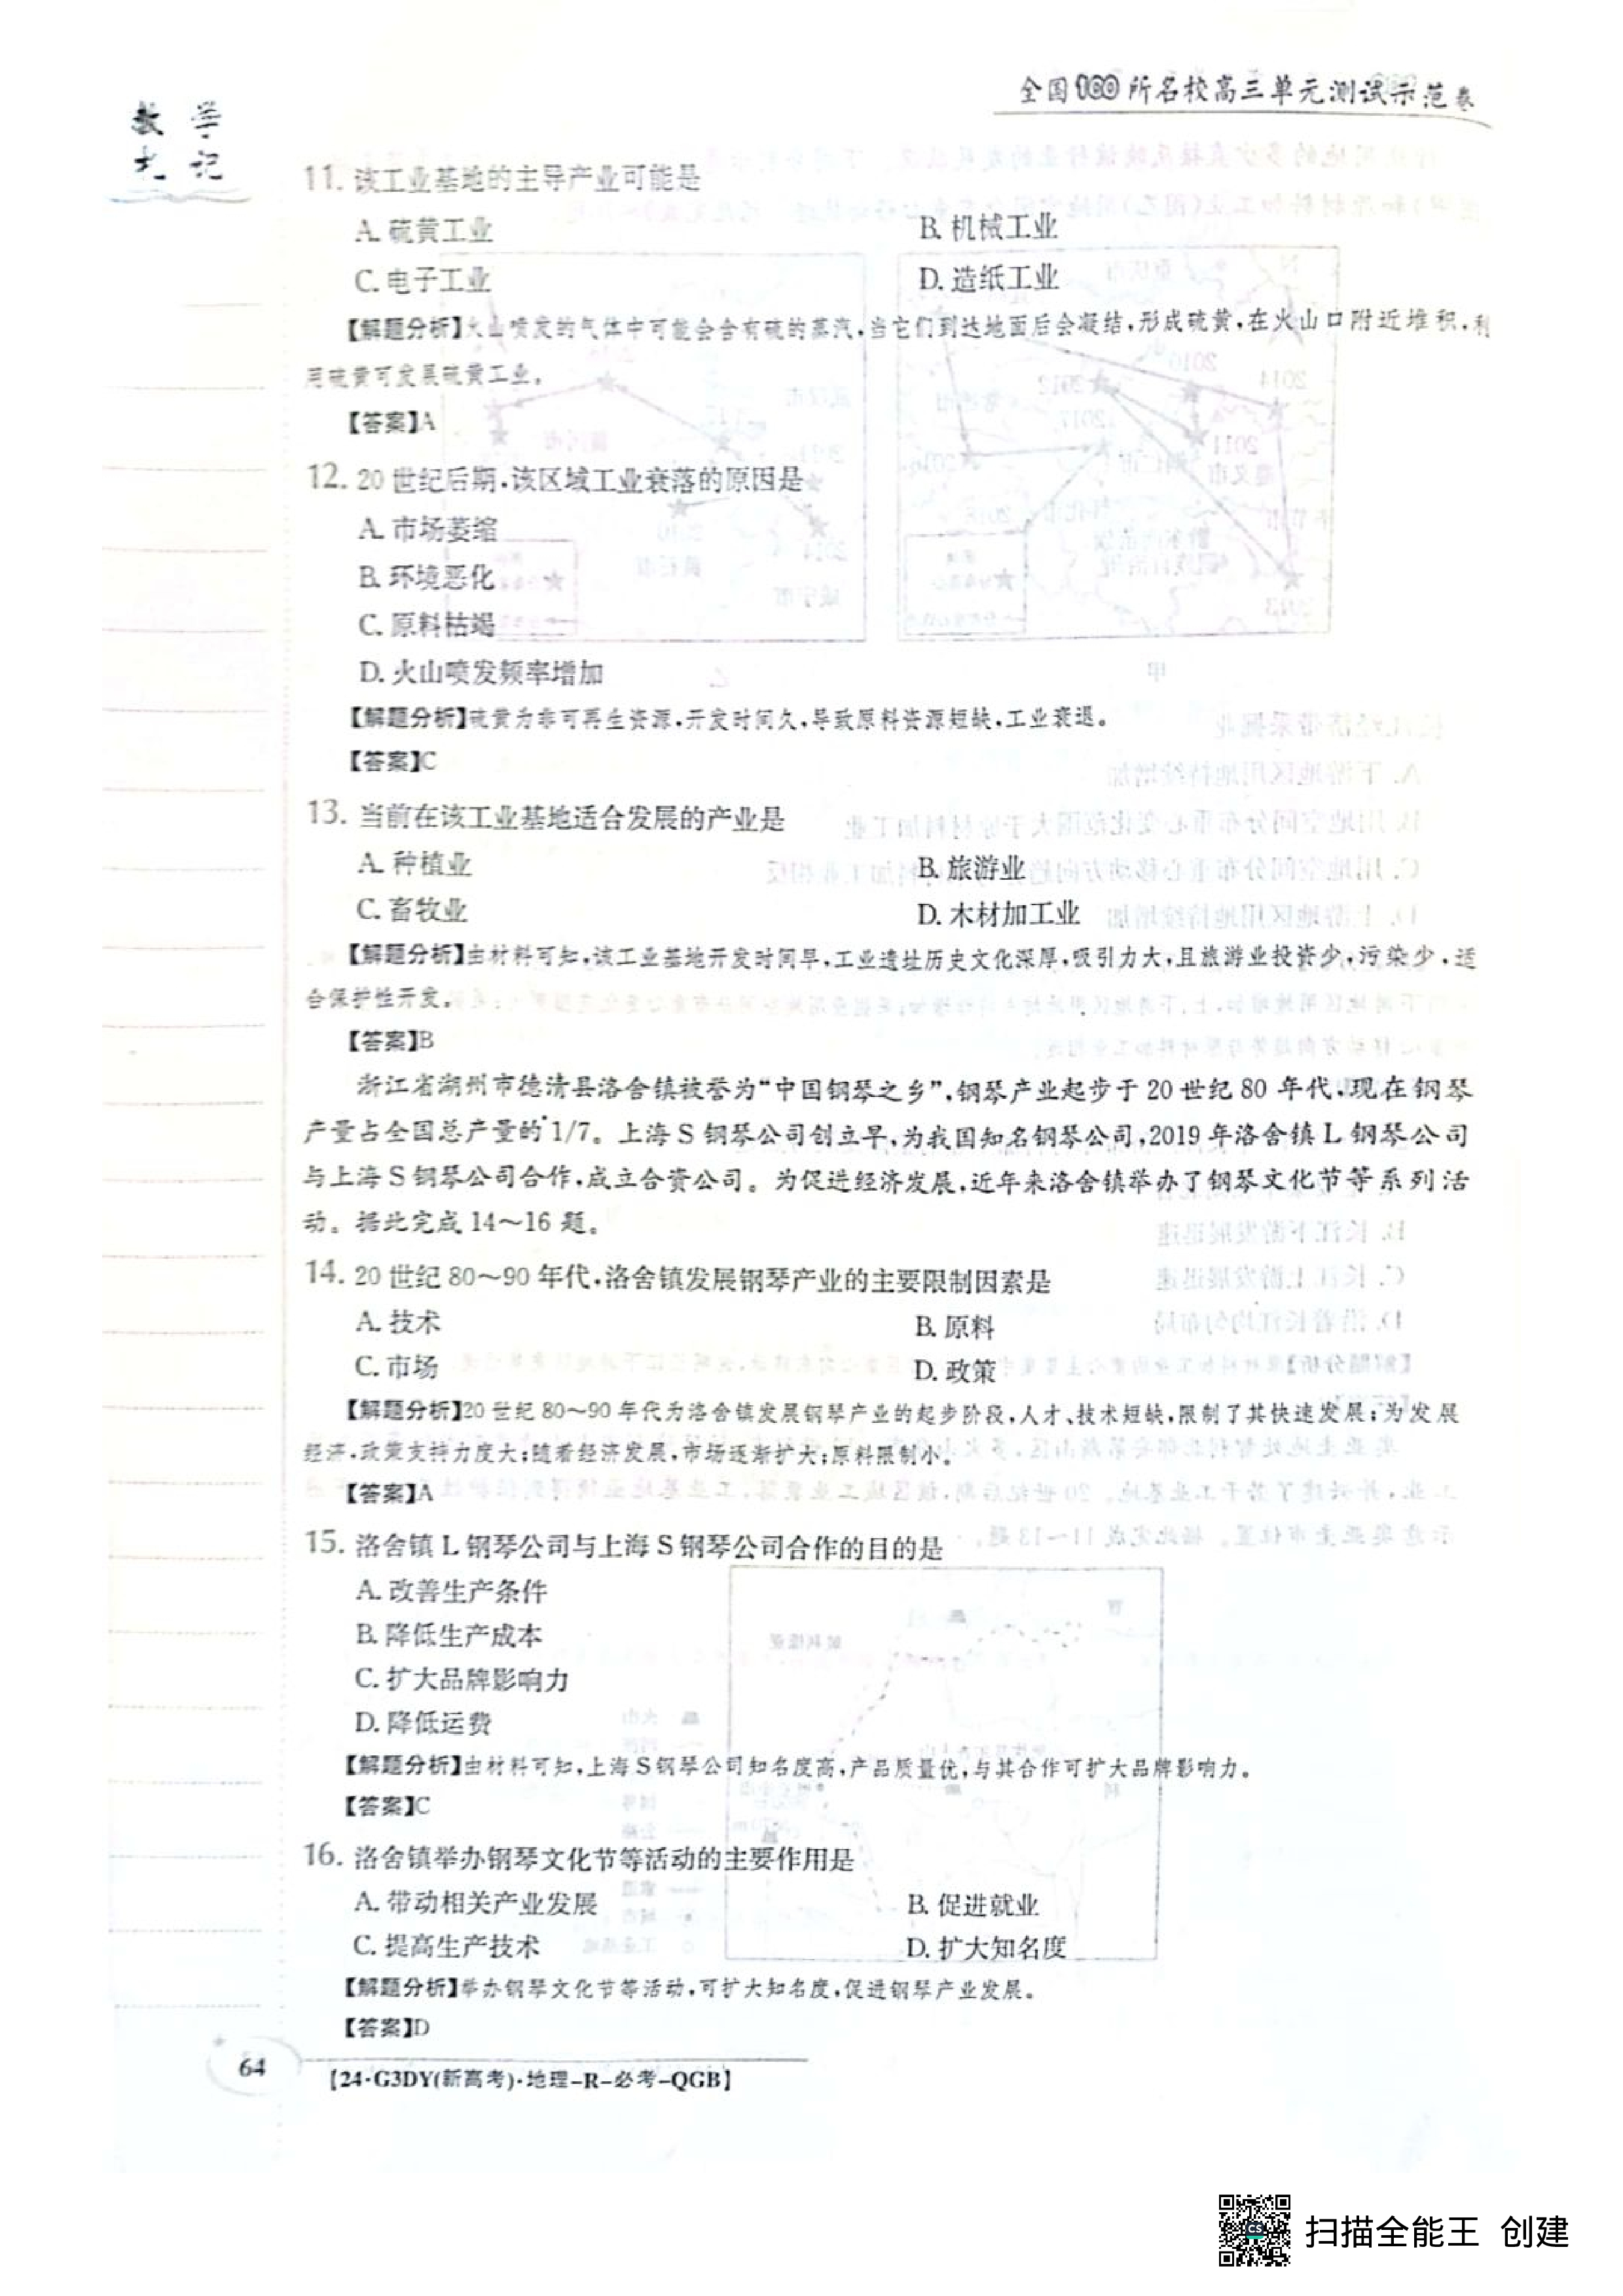 全国100所名校高三单元测试示范卷
教学
札记
11. 该工业基地的主导产业可能是
A. 硫黄工业
B. 机械工业
C. 电子工业
D. 造纸工业
【解题分析】火山喷发的气体中可能会含有硫的蒸汽,当它们到达地面后会凝结,形成硫黄,在火山口附近堆积,利
用硫黄可发展硫黄工业。
【答案】A
12. 20世纪后期,该区域工业衰落的原因是
A. 市场萎缩
B. 环境恶化
C. 原料枯竭
D. 火山喷发频率增加
【解题分析】硫黄为非可再生资源,开发时间久,导致原料资源短缺,工业衰退。
【答案】C
13. 当前在该工业基地适合发展的产业是
A. 种植业
B. 旅游业
C. 畜牧业
D. 木材加工业
【解题分析】由材料可知,该工业基地开发时间早,工业遗址历史文化深厚,吸引力大,且旅游业投资少,污染少,适
合保护性开发。
【答案】B
浙江省湖州市德清县洛舍镇被誉为“中国钢琴之乡”,钢琴产业起步于20世纪80年代,现在钢琴
产量占全国总产量的1/7。上海S钢琴公司创立早,为我国知名钢琴公司,2019年洛舍镇L钢琴公司
与上海S钢琴公司合作,成立合资公司。为促进经济发展,近年来洛舍镇举办了钢琴文化节等系列活
动。据此完成14～16题。
14. 20世纪80～90年代,洛舍镇发展钢琴产业的主要限制因素是
A. 技术
B. 原料
C. 市场
D. 政策
【解题分析】20世纪80～90年代为洛舍镇发展钢琴产业的起步阶段,人才、技术短缺,限制了其快速发展;为发展
经济,政策支持力度大;随着经济发展,市场逐渐扩大;原料限制小。
【答案】A
15. 洛舍镇L钢琴公司与上海S钢琴公司合作的目的是
A. 改善生产条件
B. 降低生产成本
C. 扩大品牌影响力
D. 降低运费
【解题分析】由材料可知,上海S钢琴公司知名度高,产品质量优,与其合作可扩大品牌影响力。
【答案】C
16. 洛舍镇举办钢琴文化节等活动的主要作用是
A. 带动相关产业发展
B. 促进就业
C. 提高生产技术
D. 扩大知名度
【解题分析】举办钢琴文化节等活动,可扩大知名度,促进钢琴产业发展。
【答案】D
64
【24·G3DY(新高考)·地理-R-必考-QGB】
扫描全能王 创建